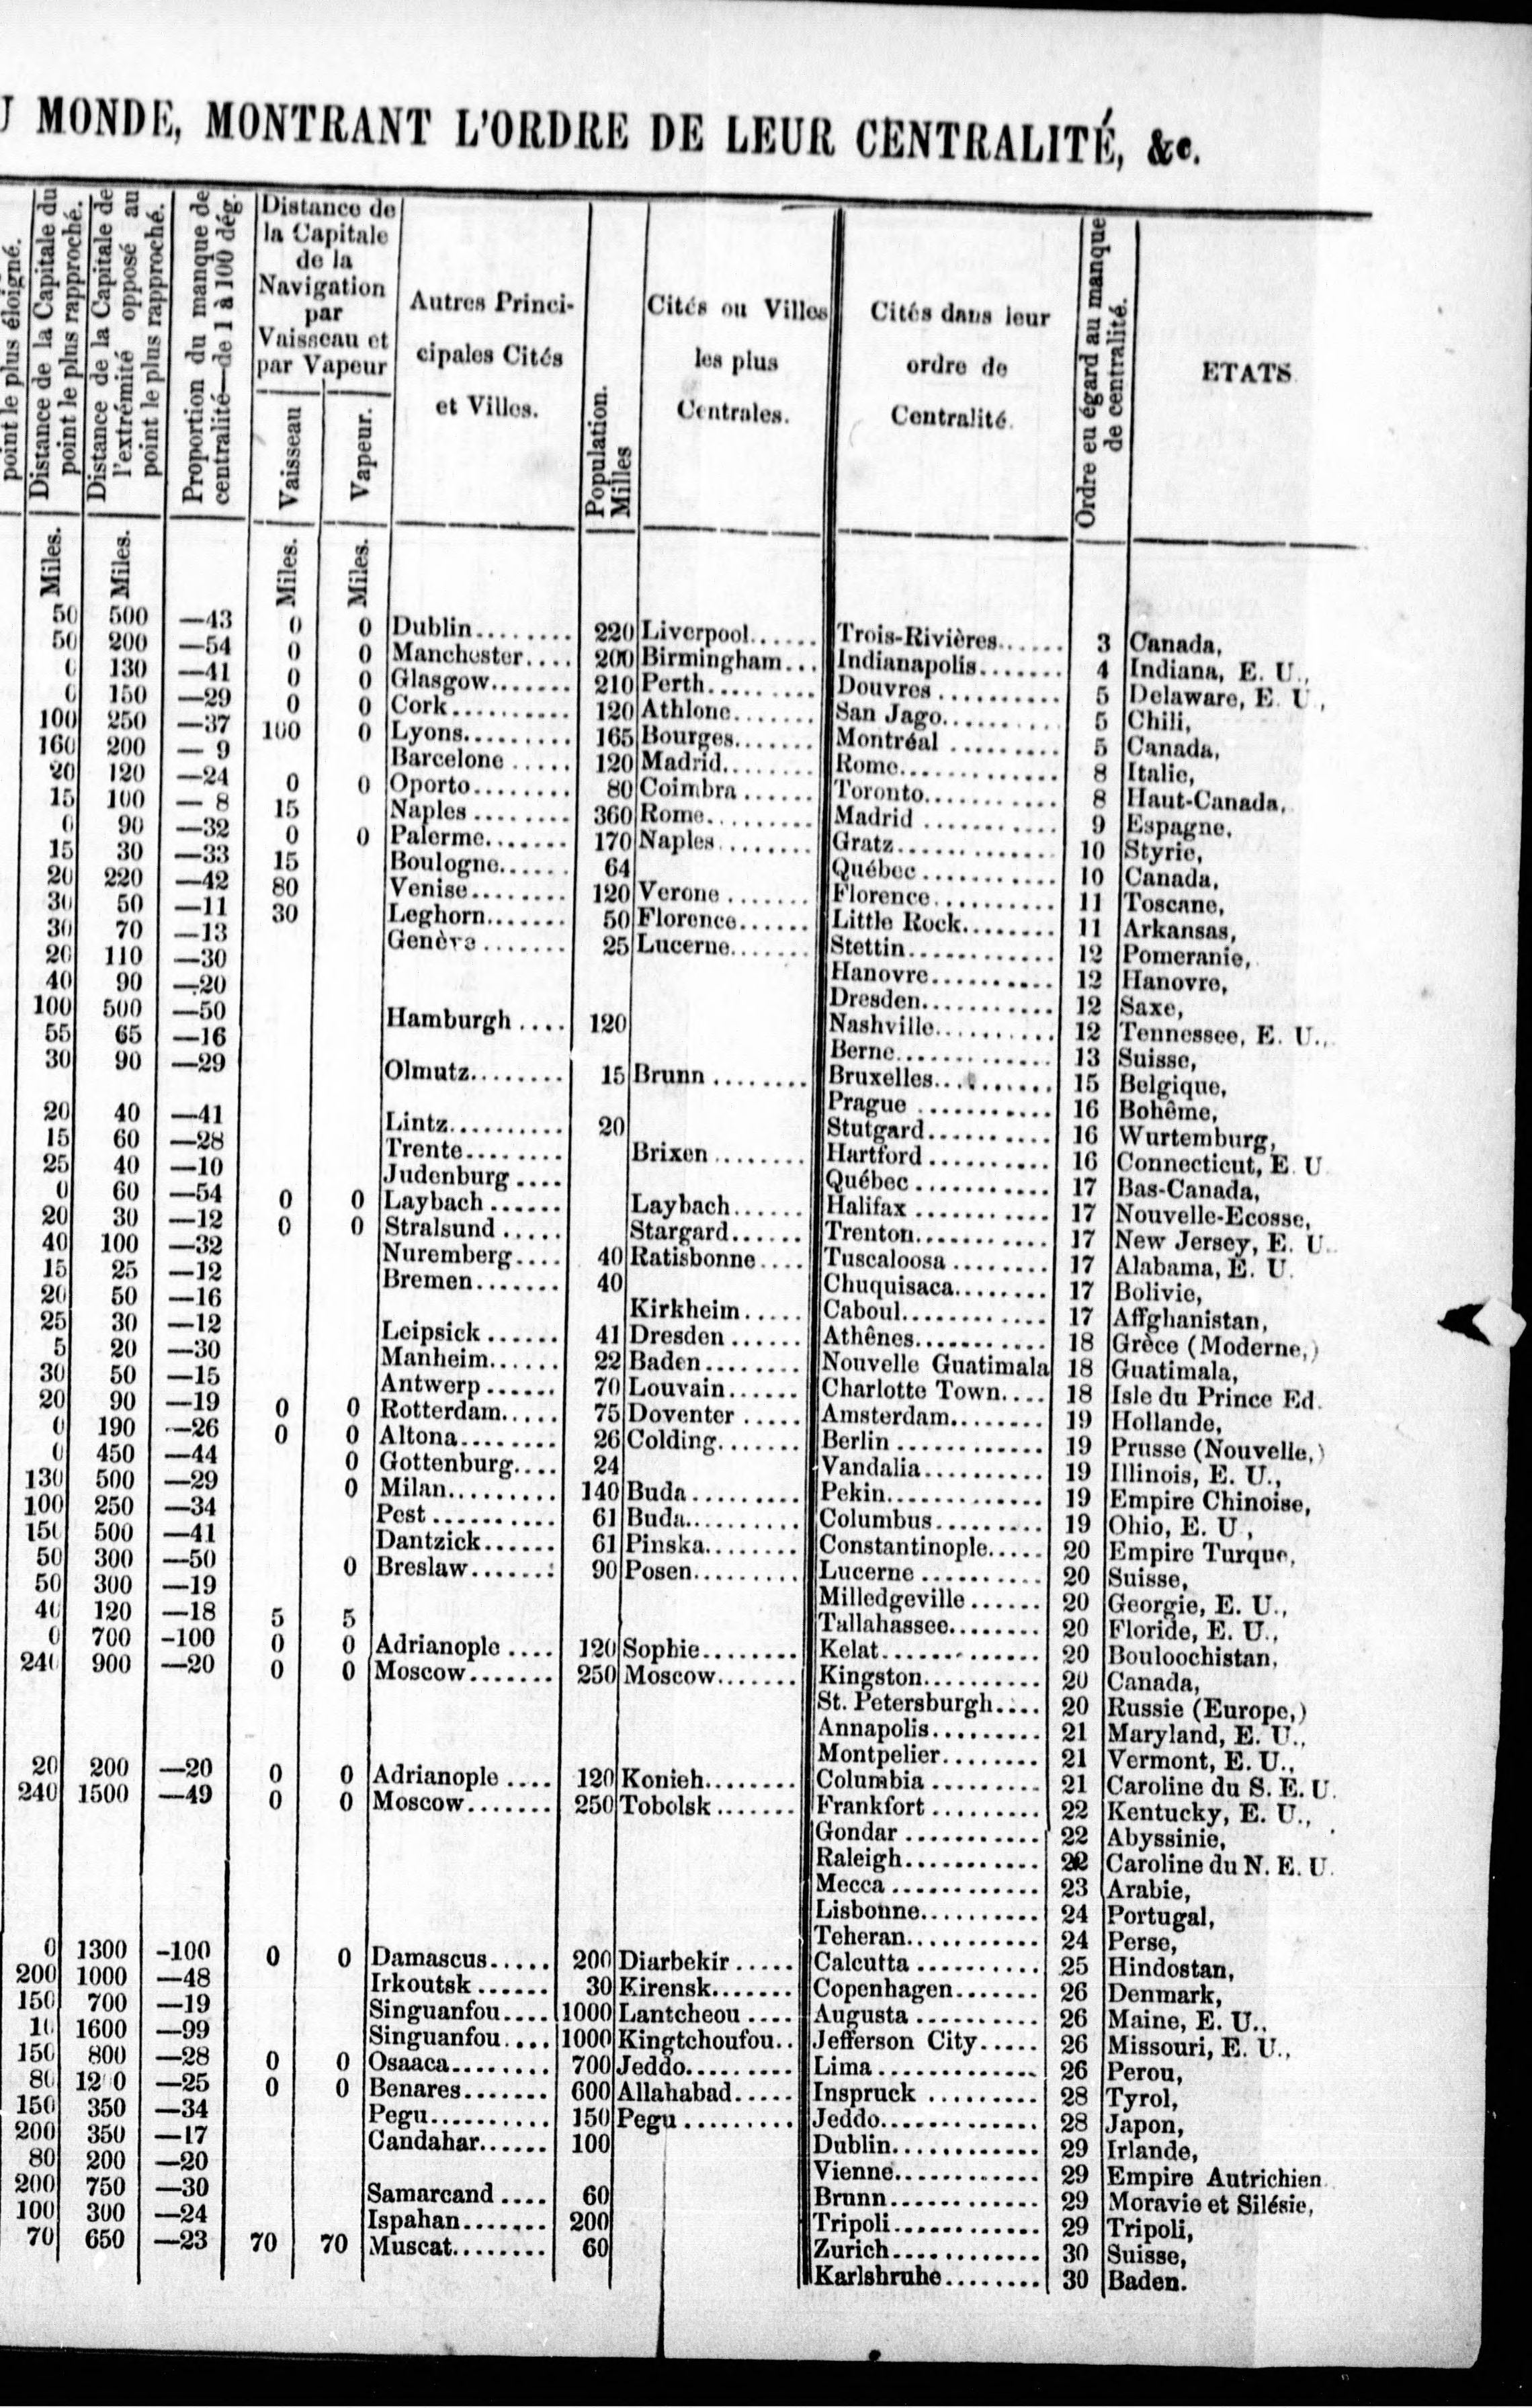 U MONDE, MONTRANT L'ORDRE DE LEUR CENTRALITÉ, &c.
point le plus éloigné.
Distance de la Capitale du
point le plus rapproché.
Distance de la Capitale de
l'extrémité opposé au
point le plus rapproché.
Proportion du manque de
centralité—de 1 à 100 dég.
Distance de
la Capitale
de la
Navigation
par
Vaisseau et
par Vapeur
Vaisseau
Vapeur.
Autres Princi-
cipales Cités
et Villes.
Population.
Milles
Cités ou Villes
les plus
Centrales.
Cités dans leur
ordre de
Centralité.
Ordre eu égard au manque
de centralité.
ETATS
Miles. Miles. Miles. Miles.
50 500 —43 0 0 Dublin........ 220 Liverpool...... Trois-Rivières...... 3 Canada,
50 200 —54 0 0 Manchester.... 200 Birmingham... Indianapolis....... 4 Indiana, E. U.,
0 130 —41 0 0 Glasgow....... 210 Perth......... Douvres........... 5 Delaware, E. U.,
0 150 —29 0 0 Cork.......... 120 Athlone....... San Jago.......... 5 Chili,
100 250 —37 100 0 Lyons......... 165 Bourges....... Montréal ......... 5 Canada,
160 200 — 9 Barcelone ..... 120 Madrid........ Rome............. 8 Italie,
20 120 —24 0 0 Oporto........ 80 Coimbra ...... Toronto........... 8 Haut-Canada,
15 100 — 8 15 Naples ........ 360 Rome......... Madrid ........... 9 Espagne,
0 90 —32 0 0 Palerme....... 170 Naples........ Gratz............. 10 Styrie,
15 30 —33 15 Boulogne...... 64 Québec ........... 10 Canada,
20 220 —42 80 Venise........ 120 Verone ....... Florence.......... 11 Toscane,
30 50 —11 30 Leghorn....... 50 Florence...... Little Rock........ 11 Arkansas,
30 70 —13 Genève ....... 25 Lucerne....... Stettin............ 12 Pomeranie,
20 110 —30 Hanovre.......... 12 Hanovre,
40 90 —20 Dresden........... 12 Saxe,
100 500 —50 Hamburgh .... 120 Nashville.......... 12 Tennessee, E. U.,
55 65 —16 Berne............. 13 Suisse,
30 90 —29 Olmutz........ 15 Brunn ........ Bruxelles.......... 15 Belgique,
Prague ........... 16 Bohême,
20 40 —41 Lintz.......... 20 Stutgard.......... 16 Wurtemburg,
15 60 —28 Trente........ Brixen ........ Hartford .......... 16 Connecticut, E. U.
25 40 —10 Judenburg .... Québec ........... 17 Bas-Canada,
0 60 —54 0 0 Laybach ...... Laybach...... Halifax ........... 17 Nouvelle-Ecosse,
20 30 —12 0 0 Stralsund ..... Stargard...... Trenton........... 17 New Jersey, E. U.
40 100 —32 Nuremberg.... 40 Ratisbonne.... Tuscaloosa ........ 17 Alabama, E. U.
15 25 —12 Bremen....... 40 Chuquisaca........ 17 Bolivie,
20 50 —16 Kirkheim..... Caboul............ 17 Affghanistan,
25 30 —12 Leipsick ...... 41 Dresden ...... Athênes........... 18 Grèce (Moderne,)
5 20 —30 Manheim...... 22 Baden........ Nouvelle Guatimala 18 Guatimala,
30 50 —15 Antwerp ...... 70 Louvain...... Charlotte Town.... 18 Isle du Prince Ed.
20 90 —19 0 0 Rotterdam..... 75 Doventer ..... Amsterdam........ 19 Hollande,
0 190 —26 0 0 Altona........ 26 Colding....... Berlin ............ 19 Prusse (Nouvelle,)
0 450 —44 0 Gottenburg.... 24 Vandalia.......... 19 Illinois, E. U.,
130 500 —29 0 Milan......... 140 Buda ......... Pekin............. 19 Empire Chinoise,
100 250 —34 Pest .......... 61 Buda.......... Columbus......... 19 Ohio, E. U,
150 500 —41 Dantzick...... 61 Pinska........ Constantinople..... 20 Empire Turque,
50 300 —50 0 Breslaw....... 90 Posen......... Lucerne .......... 20 Suisse,
50 300 —19 Milledgeville ...... 20 Georgie, E. U.,
40 120 —18 5 5 Tallahassee........ 20 Floride, E. U.,
0 700 -100 0 0 Adrianople .... 120 Sophie........ Kelat............. 20 Bouloochistan,
240 900 —20 0 0 Moscow....... 250 Moscow....... Kingston.......... 20 Canada,
St. Petersburgh.... 20 Russie (Europe,)
Annapolis......... 21 Maryland, E. U.,
Montpelier........ 21 Vermont, E. U.,
20 200 —20 0 0 Adrianople .... 120 Konieh........ Columbia ......... 21 Caroline du S. E. U.
240 1500 —49 0 0 Moscow....... 250 Tobolsk ....... Frankfort ......... 22 Kentucky, E. U.,
Gondar ........... 22 Abyssinie,
Raleigh........... 22 Caroline du N. E. U.
Mecca ............ 23 Arabie,
Lisbonne.......... 24 Portugal,
Teheran........... 24 Perse,
0 1300 -100 0 0 Damascus..... 200 Diarbekir ..... Calcutta .......... 25 Hindostan,
200 1000 —48 Irkoutsk ...... 30 Kirensk....... Copenhagen....... 26 Denmark,
150 700 —19 Singuanfou.... 1000 Lantcheou .... Augusta .......... 26 Maine, E. U.,
10 1600 —99 Singuanfou.... 1000 Kingtchoufou.. Jefferson City..... 26 Missouri, E. U.,
150 800 —28 0 0 Osaaca........ 700 Jeddo......... Lima ............. 26 Perou,
80 12 0 —25 0 0 Benares....... 600 Allahabad..... Inspruck ......... 28 Tyrol,
150 350 —34 Pegu.......... 150 Pegu ......... Jeddo............. 28 Japon,
200 350 —17 Candahar...... 100 Dublin............ 29 Irlande,
80 200 —20 Vienne............ 29 Empire Autrichien
200 750 —30 Samarcand .... 60 Brunn............ 29 Moravie et Silésie,
100 300 —24 Ispahan....... 200 Tripoli............ 29 Tripoli,
70 650 —23 70 70 Muscat........ 60 Zurich............ 30 Suisse,
Karlsbruhe........ 30 Baden.